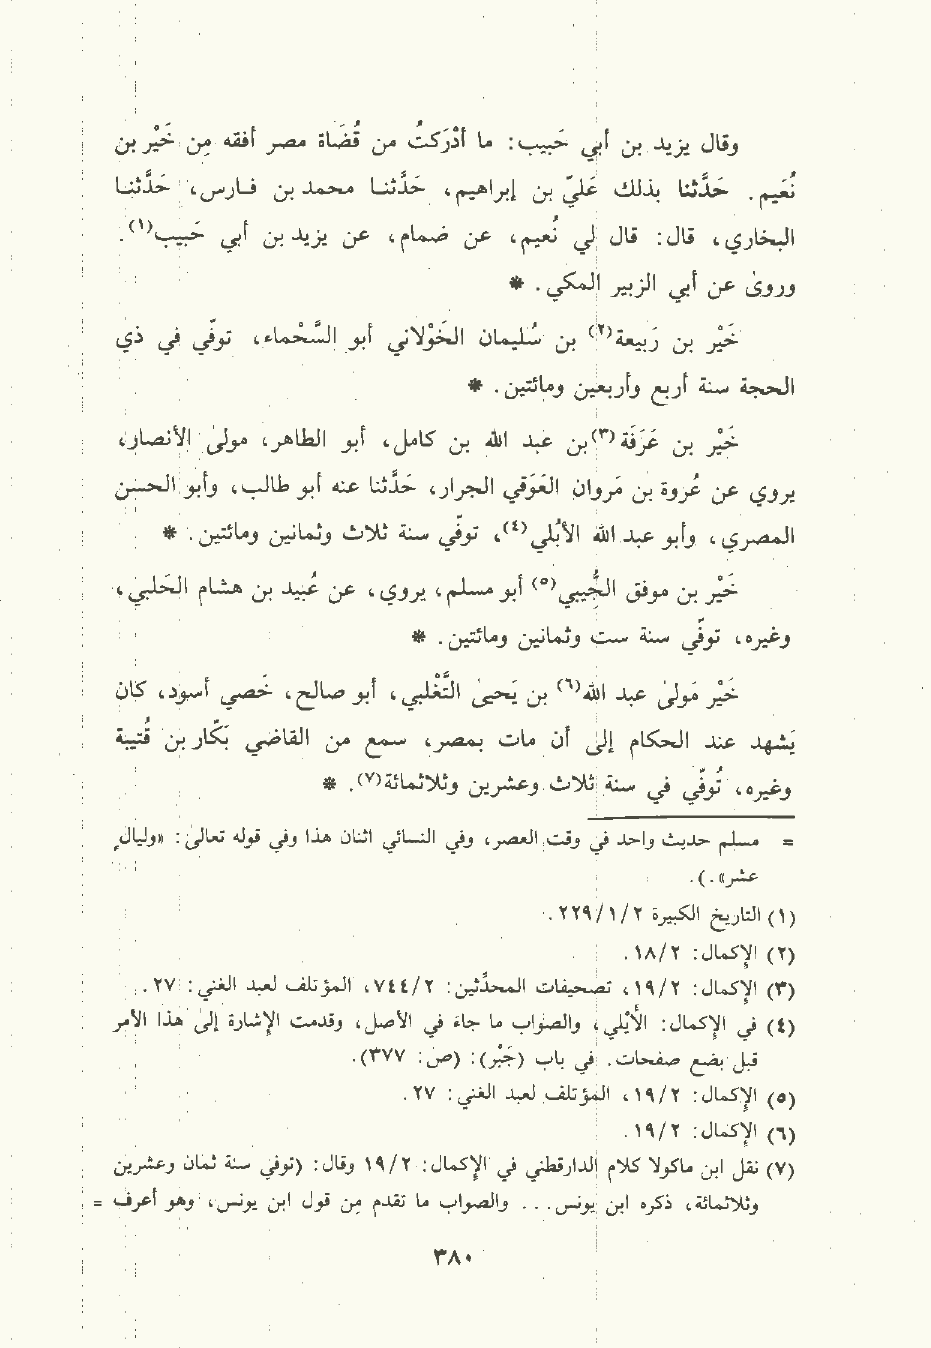 وقال يزيد بن أبي حَبيب: ما أدْرَكتُ من قُضَاة مصر أفقه مِن خَيْر بن
نُعَيم. حَدَّثنا بذلك عَليّ بن إبراهيم، حَدَّثنا محمد بن فارس، حَدَّثنا
البخاري، قال: قال لي نُعيم، عن ضمام، عن يزيد بن أبي حَبيب(١).
وروىٰ عن أبي الزبير المكي. *
خَيْر بن رَبيعة(٢) بن سُليمان الخَوْلاني أبو السَّحْماء، توفّي في ذي
الحجة سنة أربع وأربعين ومائتين. *
خَيْر بن عَرَفَة(٣) بن عبد الله بن كامل، أبو الطاهر، مولىٰ الأنصار،
يروي عن عُروة بن مَروان العَوَقي الجرار، حَدَّثنا عنه أبو طالب، وأبو الحسن
المصري، وأبو عبد الله الأبُلي(٤)، توفّي سنة ثلاث وثمانين ومائتين. *
خَيْر بن موفق التُّجِيبي(٥) أبو مسلم، يروي، عن عُبيد بن هشام الحَلبي،
وغيره، توفّي سنة ست وثمانين ومائتين. *
خَيْر مَولىٰ عبد الله(٦) بن يَحيىٰ التَّغْلبي، أبو صالح، خَصي أسود، كان
يَشهد عند الحكام إلىٰ أن مات بمصر، سمع من القاضي بَكّار بن قُتيبة
وغيره، تُوفّي في سنة ثلاث وعشرين وثلاثمائة(٧). *
= مسلم حديث واحد في وقت العصر، وفي النسائي اثنان هذا وفي قوله تعالىٰ: «وليالٍ
عشر».).
(١) التاريخ الكبيرة ٢/١/٢٢٩.
(٢) الإكمال: ١٨/٢.
(٣) الإكمال: ١٩/٢، تصحيفات المحدّثين: ٧٤٤/٢، المؤتلف لعبد الغني: ٢٧.
(٤) في الإكمال: الأيْلي، والصواب ما جاء في الأصل، وقدمت الإشارة إلىٰ هذا الأمر
قبل بضع صفحات. في باب (جَبْر): (ص: ٣٧٧).
(٥) الإكمال: ١٩/٢، المؤتلف لعبد الغني: ٢٧.
(٦) الإكمال: ١٩/٢.
(٧) نقل ابن ماكولا كلام الدارقطني في الإكمال: ١٩/٢ وقال: (توفي سنة ثمان وعشرين
وثلاثمائة، ذكره ابن يونس... والصواب ما تقدم مِن قول ابن يونس، وهو أعرف =
٣٨٠